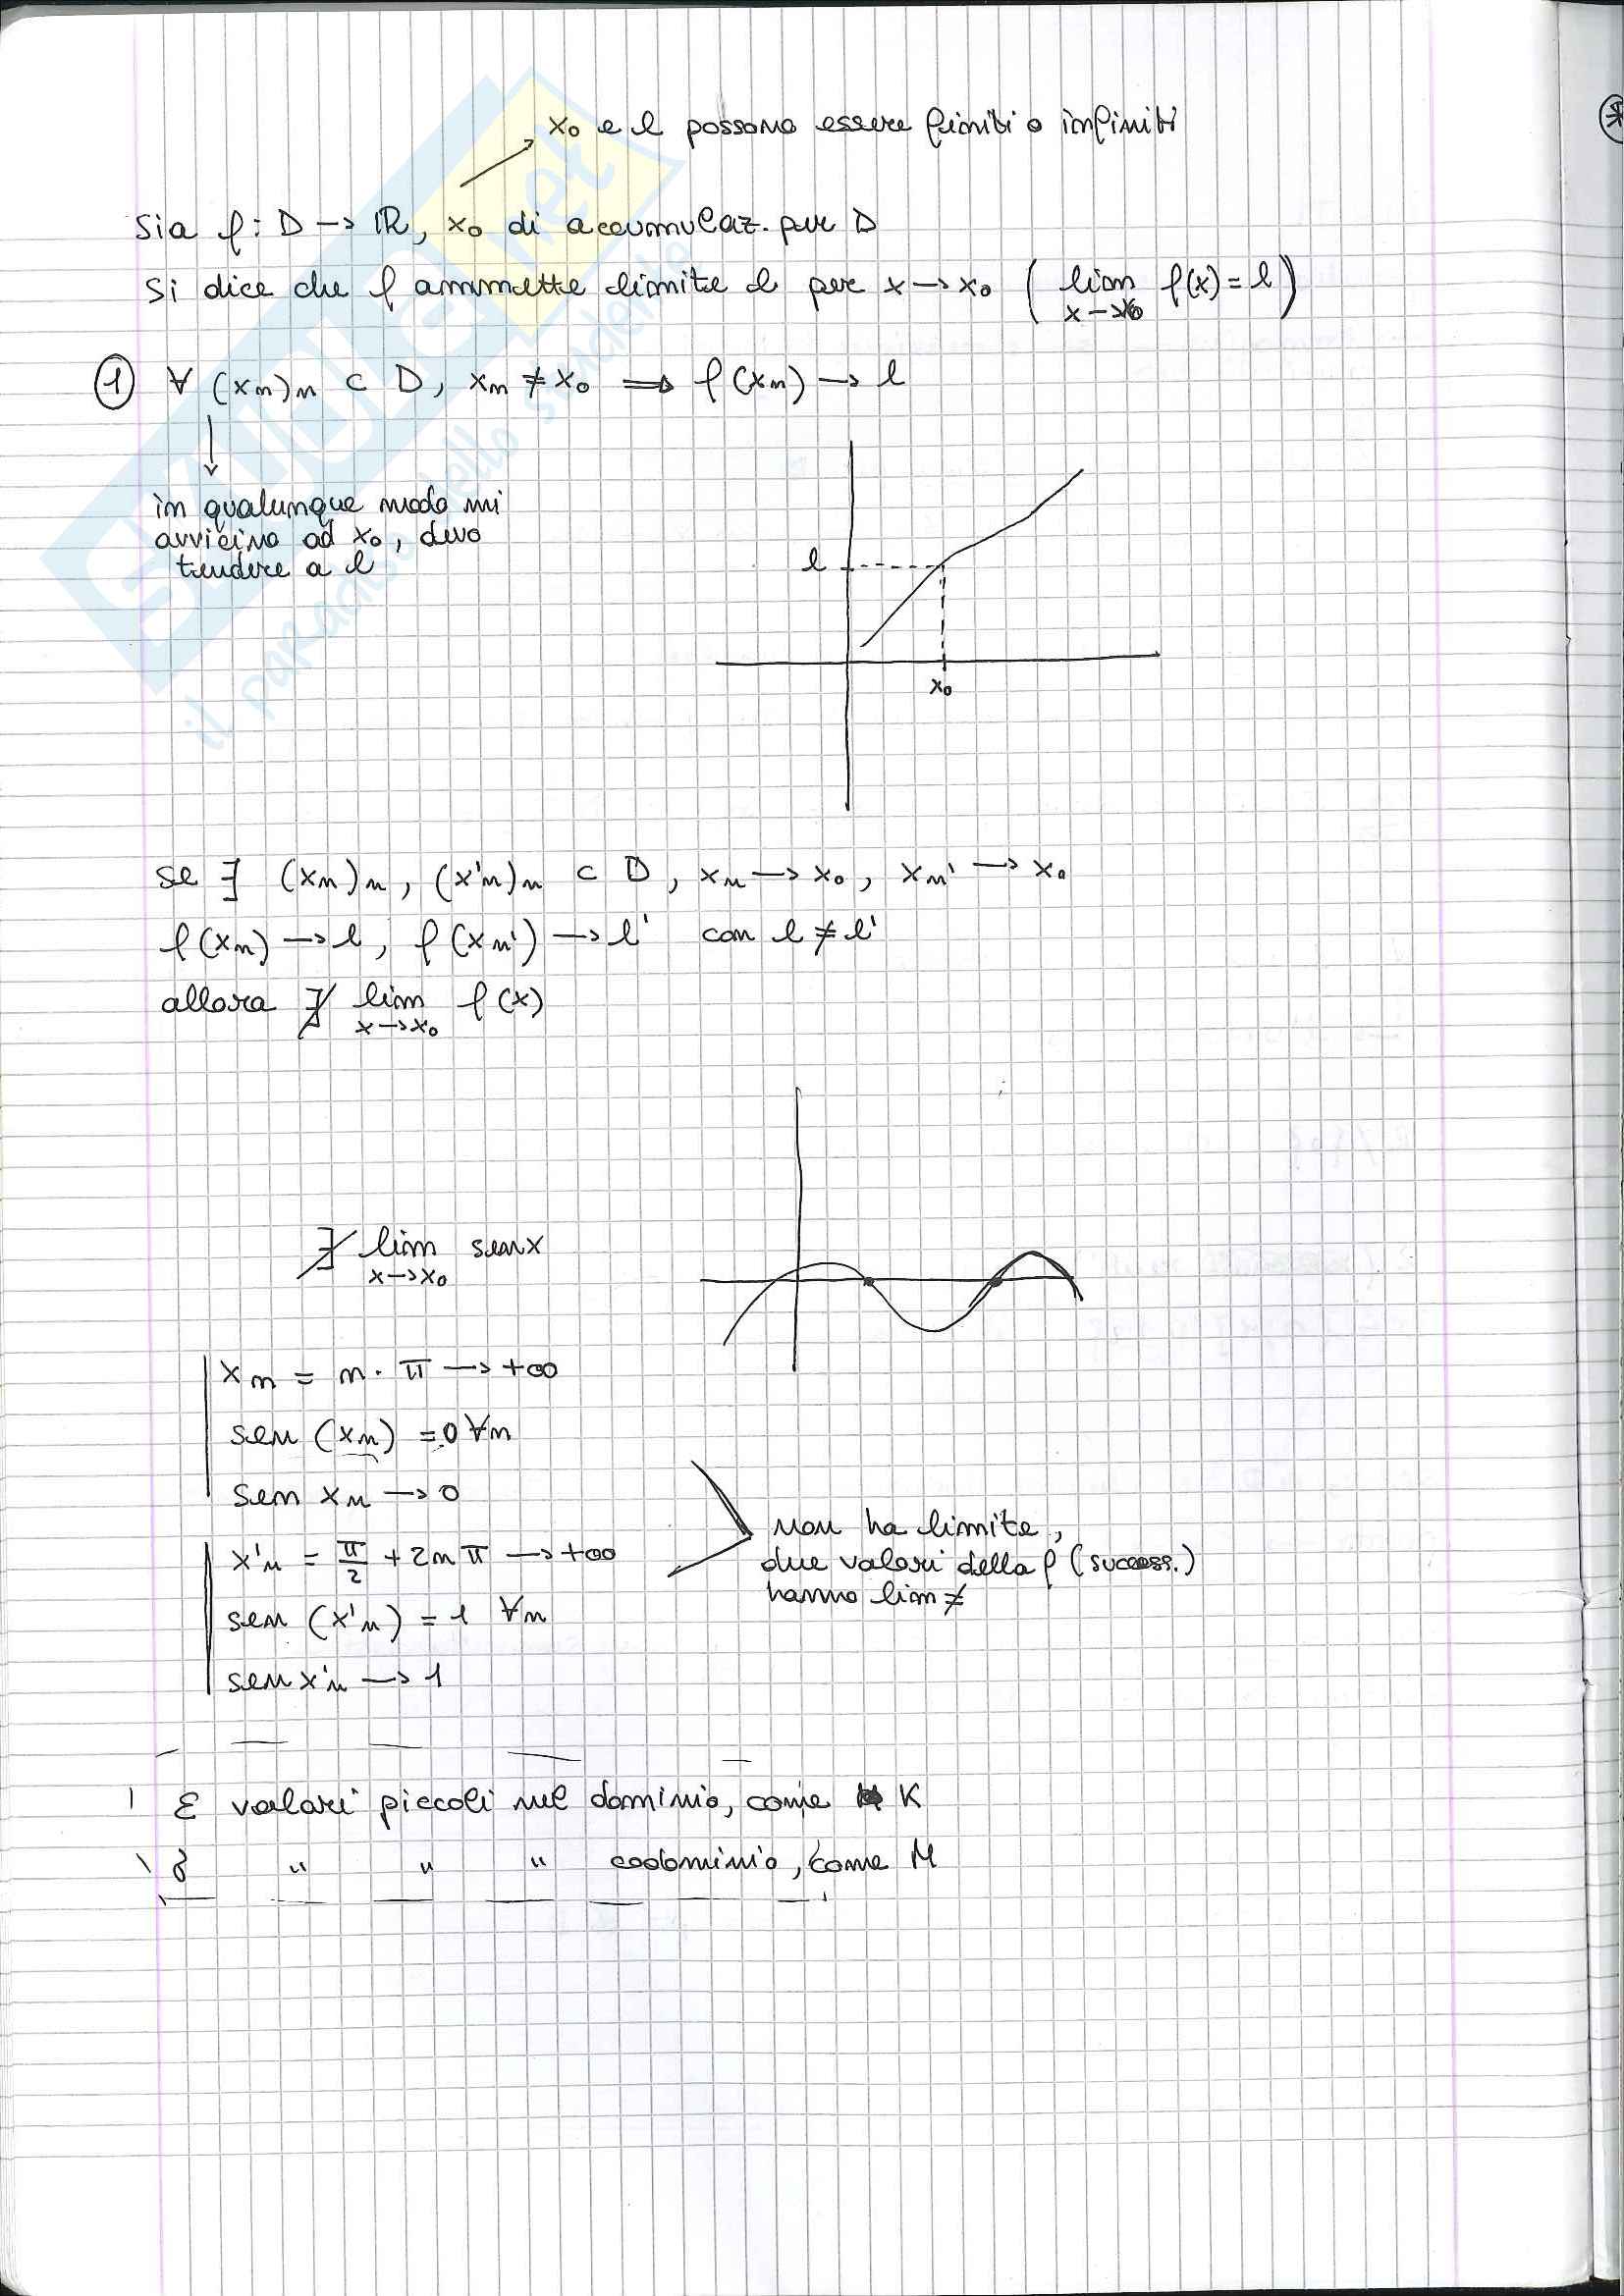 x₀ e l possono essere finiti o infiniti
Sia f: D → ℝ, x₀ di accumulaz. per D
Si dice che f ammette limite l per x → x₀ ( lim x→x₀ f(x) = l )
① ∀ (xn)n ⊂ D, xn ≠ x₀ ⟹ f(xn) → l
in qualunque modo mi
avvicino ad x₀, devo
tendere a l
l
x₀
se ∃ (xn)n, (x'n)n ⊂ D, xn → x₀, xn' → x₀
f(xn) → l, f(xn') → l' con l ≠ l'
allora ∄ lim x→x₀ f(x)
∄ lim x→x₀ senx
xn = n · π → +∞
sen (xn) = 0 ∀n
sen xn → 0
x'n = π/2 + 2nπ → +∞
sen (x'n) = 1 ∀n
sen x'n → 1
non ha limite,
due valori della f (success.)
hanno lim ≠
ε valori piccoli nel dominio, come K
δ " " " codominio, come M
SKUOLA.net
il paradiso dello studente